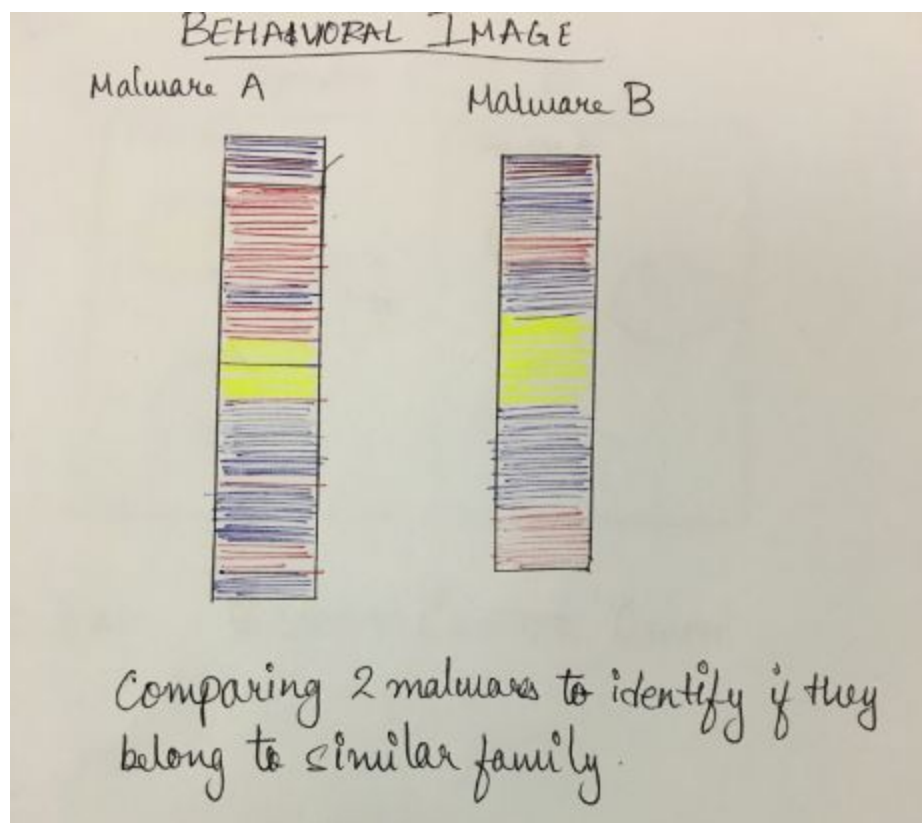 BEHAIVORAL IMAGE
Malware A
Malware B
Comparing 2 malwares to identify if they
belong to similar family.